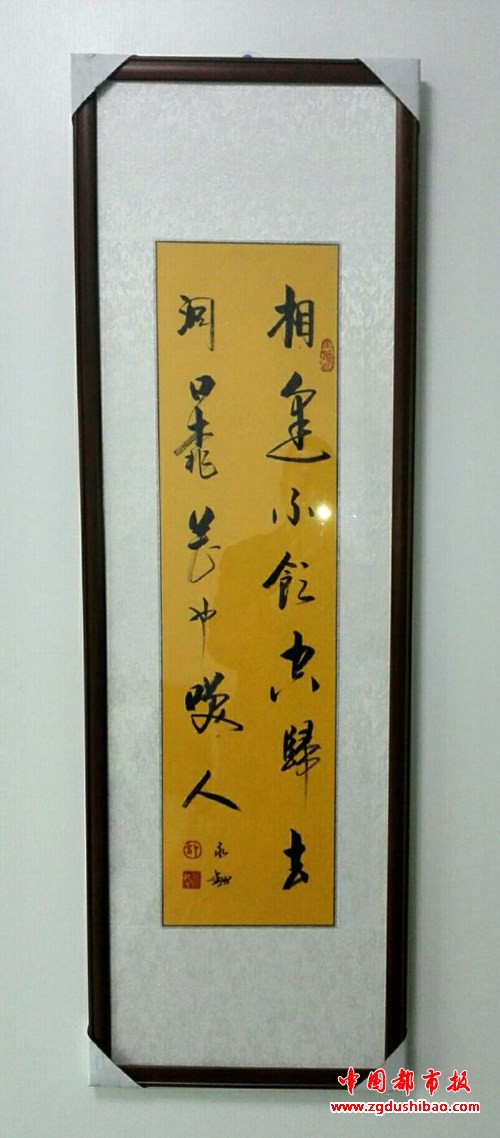 相逢不飲空歸去
洞口桃花也咲人
中国都市报
www.zgdushibao.com